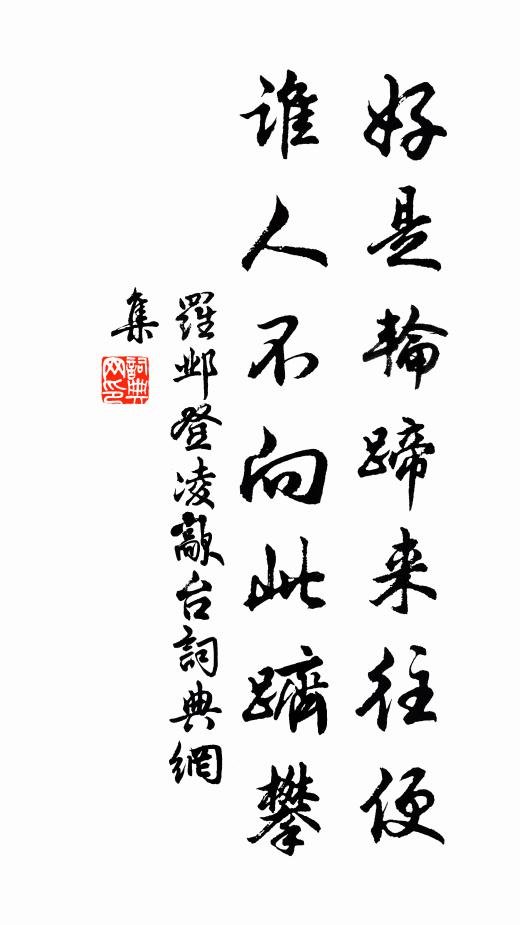 好是輪蹄来往便
谁人不向此躋攀
羅邺登凌歊台詞典網
集
詞典
网印